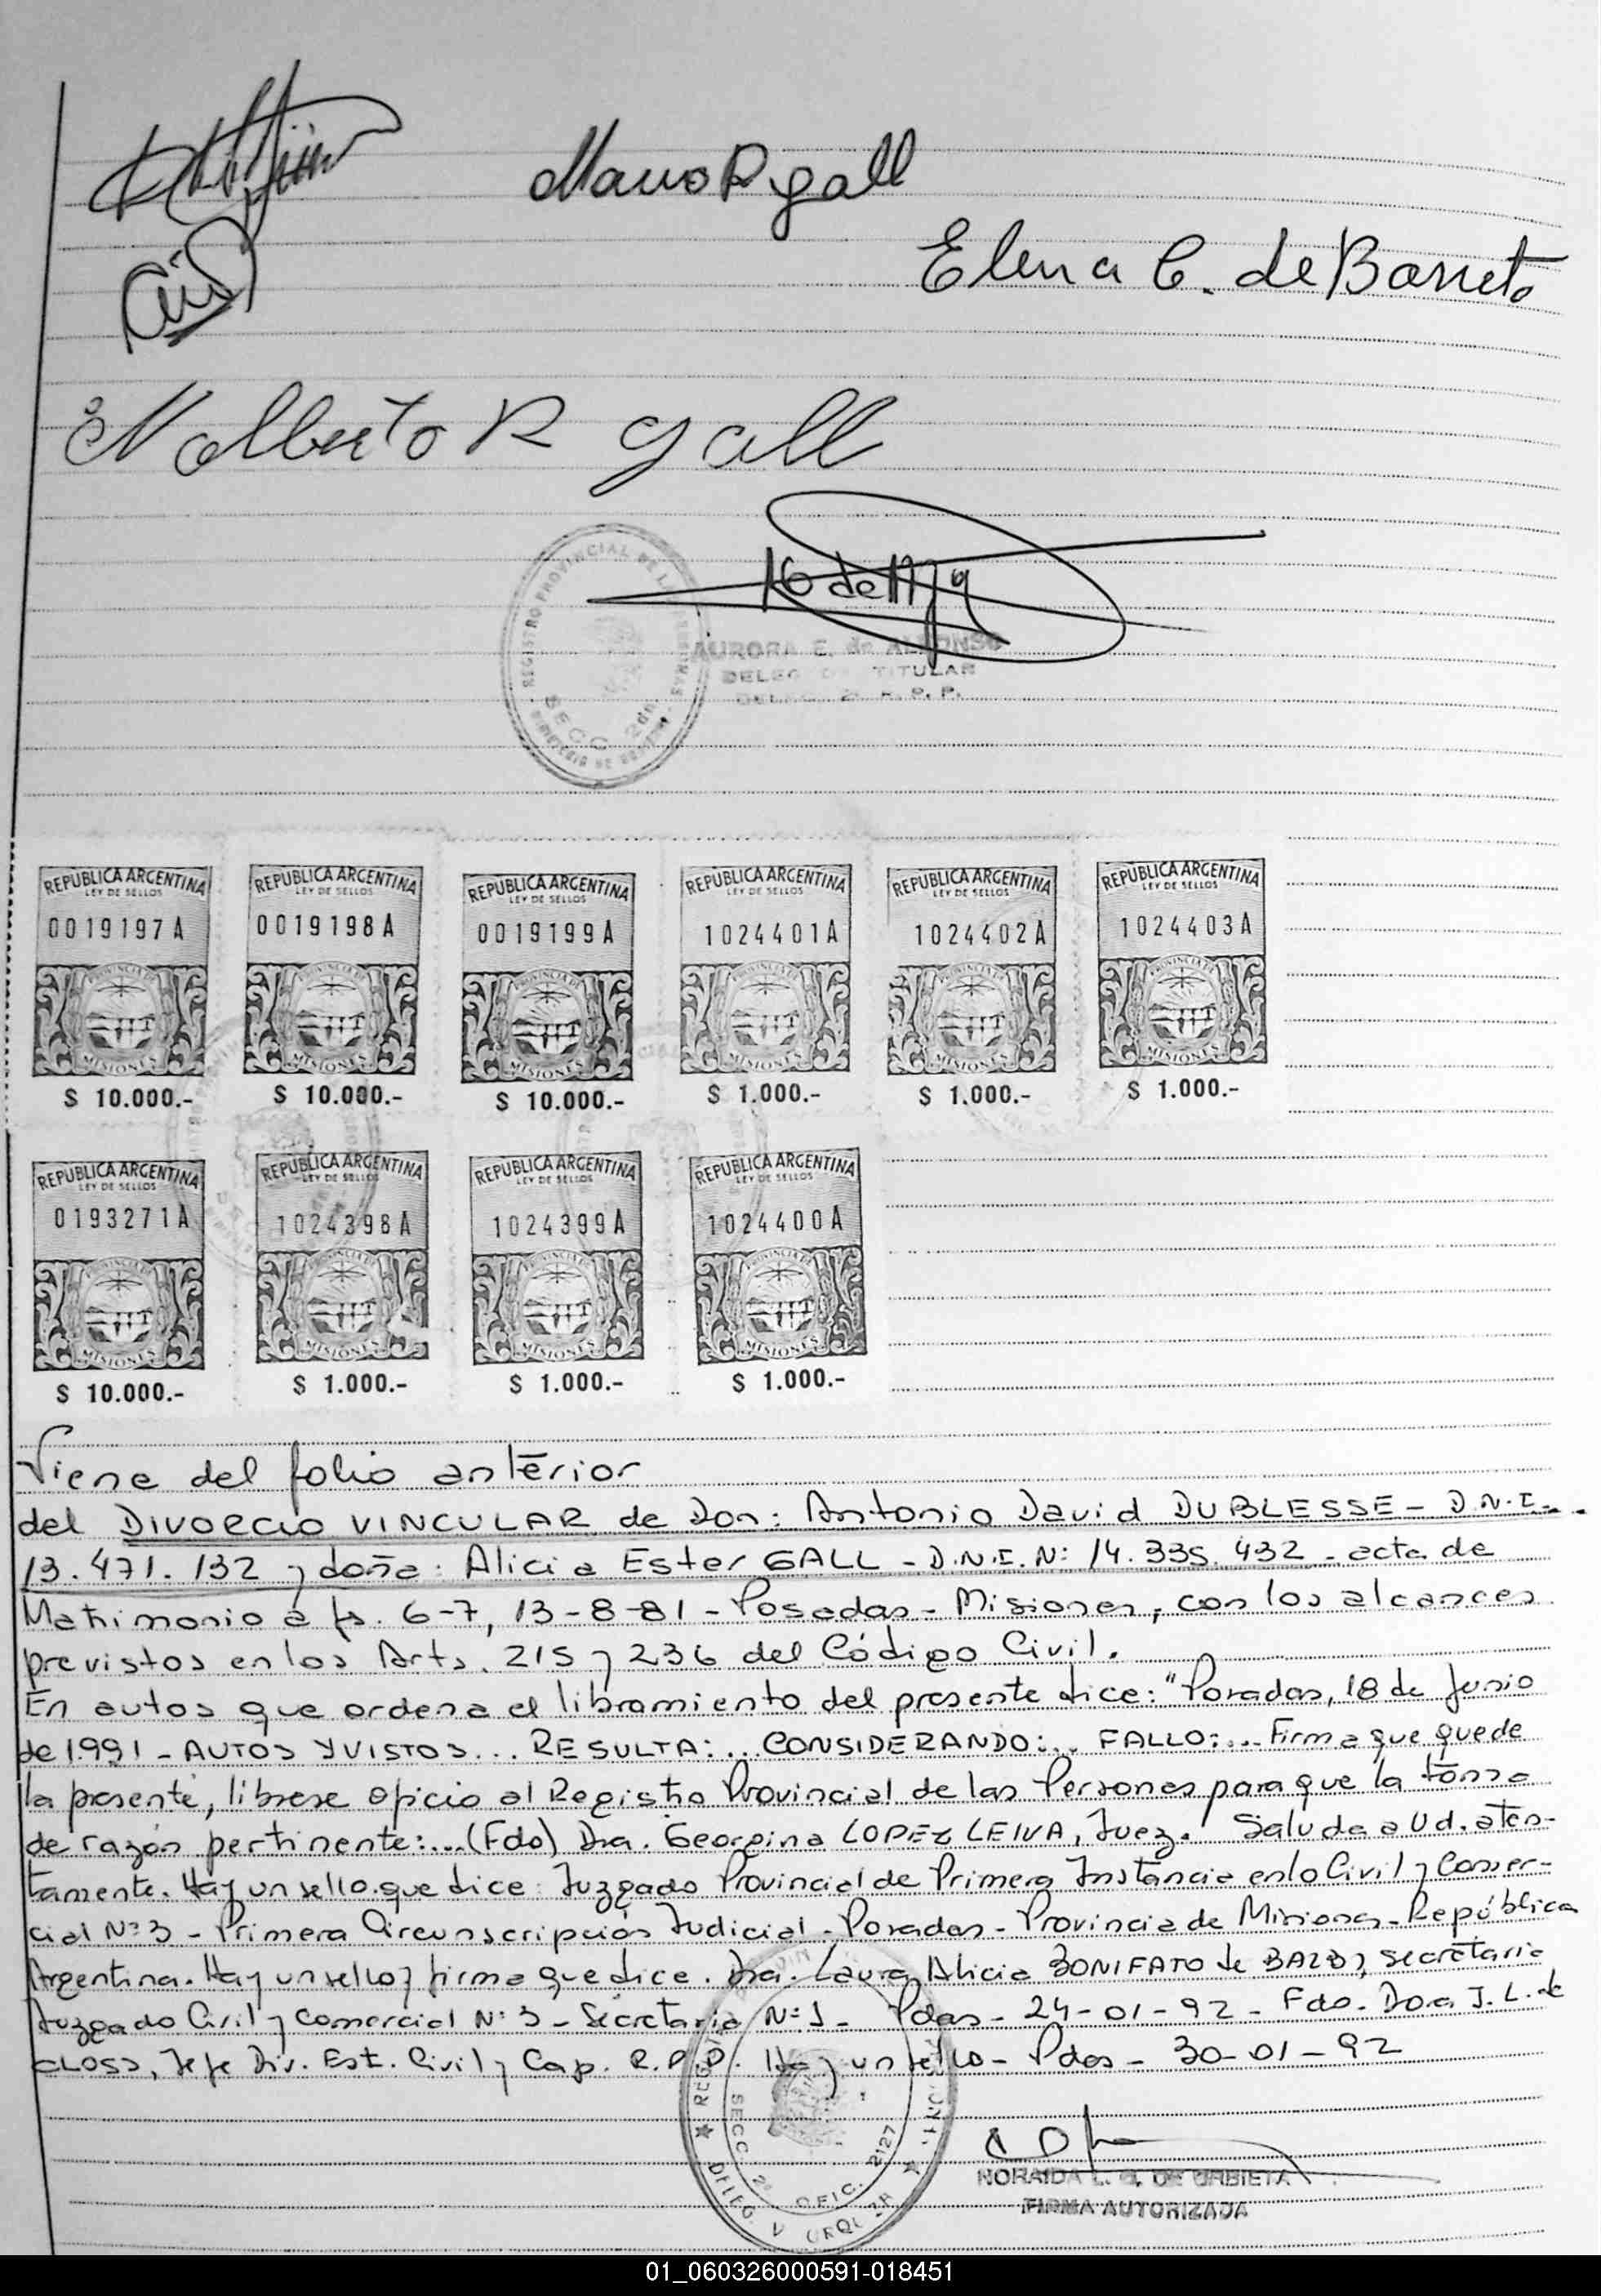 Mario R gall
Elena C. de Barreto
Nalberto R gall
REGISTRO PROVINCIAL DE LAS PERSONAS
SECC. 2da
AURORA E. de ALFONSO
TITULAR
R. P. P.
REPUBLICA ARGENTINA REPUBLICA ARGENTINA REPUBLICA ARGENTINA REPUBLICA ARGENTINA REPUBLICA ARGENTINA REPUBLICA ARGENTINA
LEY DE SELLOS LEY DE SELLOS LEY DE SELLOS LEY DE SELLOS LEY DE SELLOS LEY DE SELLOS
0019197A 0019198A 0019199A 1024401A 1024402A 1024403A
MISIONES MISIONES MISIONES MISIONES MISIONES MISIONES
$ 10.000.- $ 10.000.- $ 10.000.- $ 1.000.- $ 1.000.- $ 1.000.-
REPUBLICA ARGENTINA REPUBLICA ARGENTINA REPUBLICA ARGENTINA REPUBLICA ARGENTINA
LEY DE SELLOS LEY DE SELLOS LEY DE SELLOS LEY DE SELLOS
0193271A 1024398A 1024399A 1024400A
MISIONES MISIONES MISIONES MISIONES
$ 10.000.- $ 1.000.- $ 1.000.- $ 1.000.-
Viene del folio anterior
del DIVORCIO VINCULAR de Don: Antonio David DUBLESSE - D.N.I.-
13.471.132 y doña: Alicia Ester GALL - D.N.I. N: 14.335.432 - acta de
Matrimonio a fs. 6-7, 13-8-81 - Posadas - Misiones, con los alcances
previstos en los Arts. 215 y 236 del Código Civil.
En autos que ordena el libramiento del presente dice: "Posadas, 18 de Junio
de 1991 - AUTOS Y VISTOS... RESULTA:... CONSIDERANDO:... FALLO:... Firme que quede
la presente, librese oficio al Registro Provincial de las Personas para que la tonna
de razón pertinente:...(Fdo) Dra. Georgina LOPEZ LEIVA, Juez. Saluda a Ud. aten-
tamente. Hay un sello que dice: Juzgado Provincial de Primera Instancia en lo Civil y Comer-
cial N:3 - Primera Circunscripción Judicial - Posadas - Provincia de Misiones - República
Argentina. Hay un sello y firma que dice. Dra. Laura Alicia BONIFATO de BALBI, secretaria
Juzgado Civil y Comercial N:3 - Secretaria N:1 - Pdas - 24-01-92 - Fdo. Dora J. L. de
CLOSS, Jefe Div. Est. Civil y Cap. R.P.P. Hay un sello - Pdas - 30-01-92
SECC. 2ª OFIC. 2127
DELEG. V URQUIZA
NORAIDA L. G. DE URBIETA
FIRMA AUTORIZADA
01_060326000591-018451